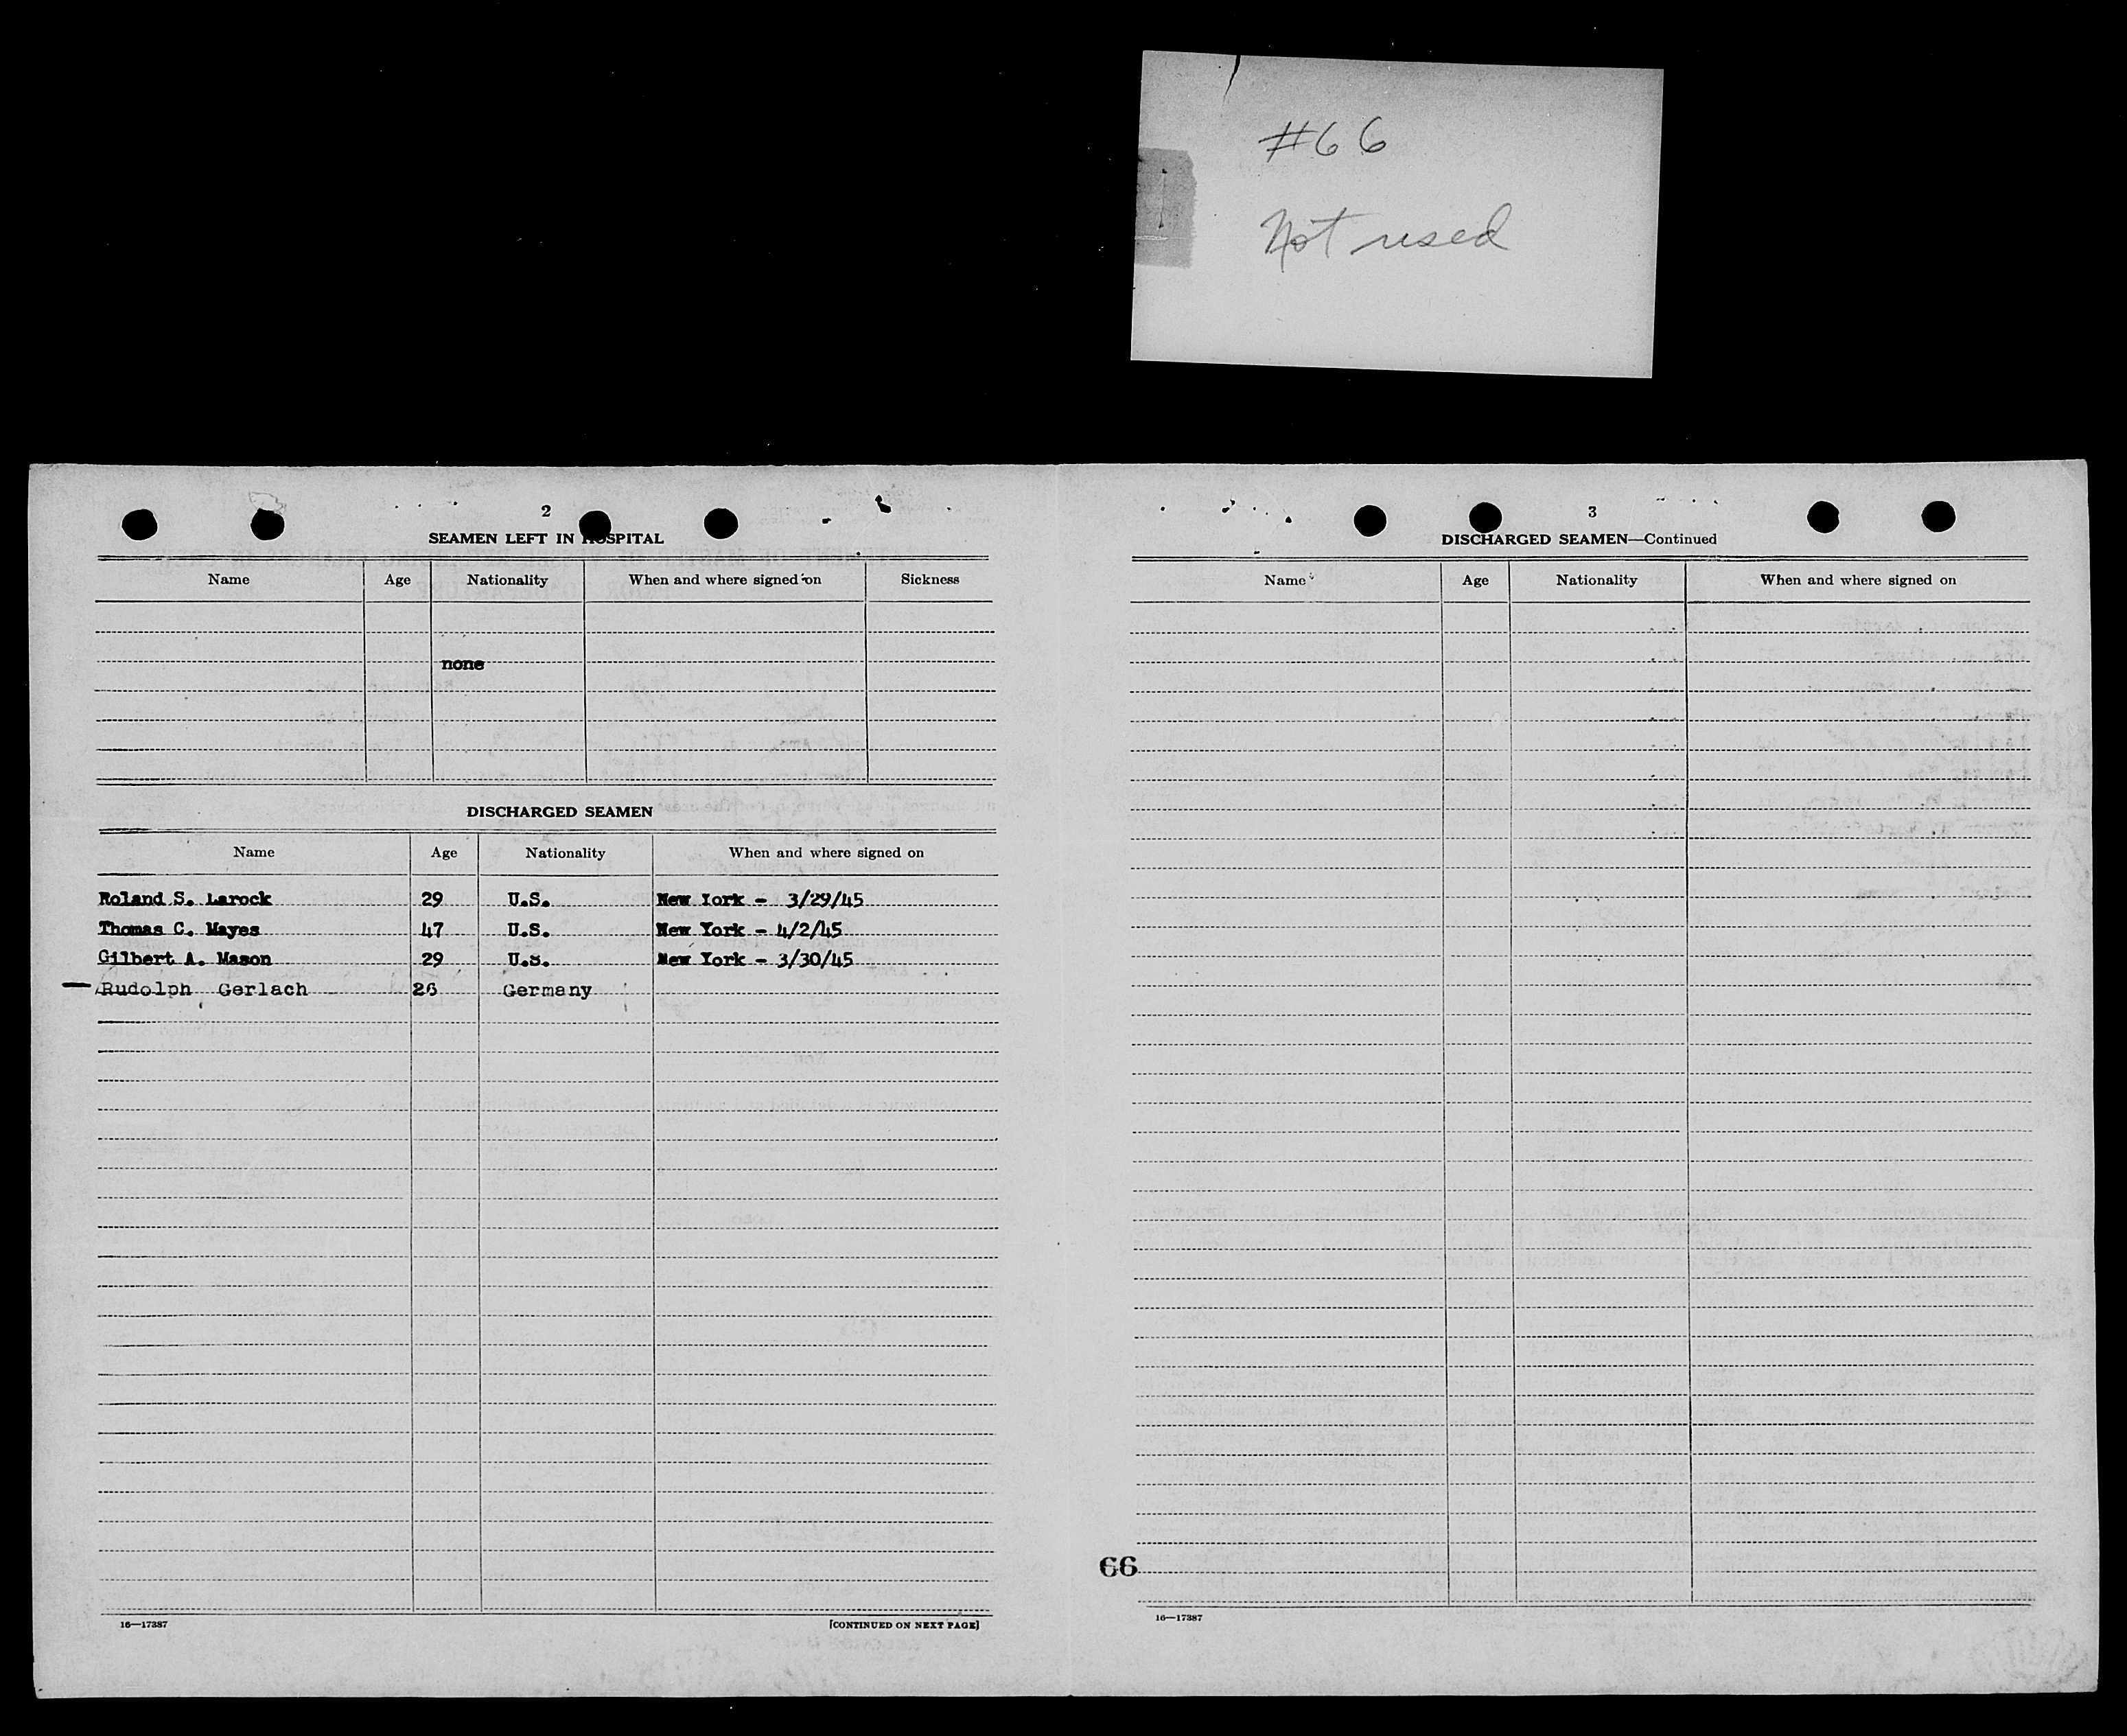 #66
Not used
2
SEAMEN LEFT IN HOSPITAL
Name Age Nationality When and where signed on Sickness
none
DISCHARGED SEAMEN
Name Age Nationality When and where signed on
Roland S. Larock 29 U.S. New York - 3/29/45
Thomas C. Mayes 47 U.S. New York - 4/2/45
Gilbert A. Mason 29 U.S. New York - 3/30/45
Rudolph Gerlach 26 Germany
16—17387 [CONTINUED ON NEXT PAGE]
3
DISCHARGED SEAMEN—Continued
Name Age Nationality When and where signed on
66
16—17387